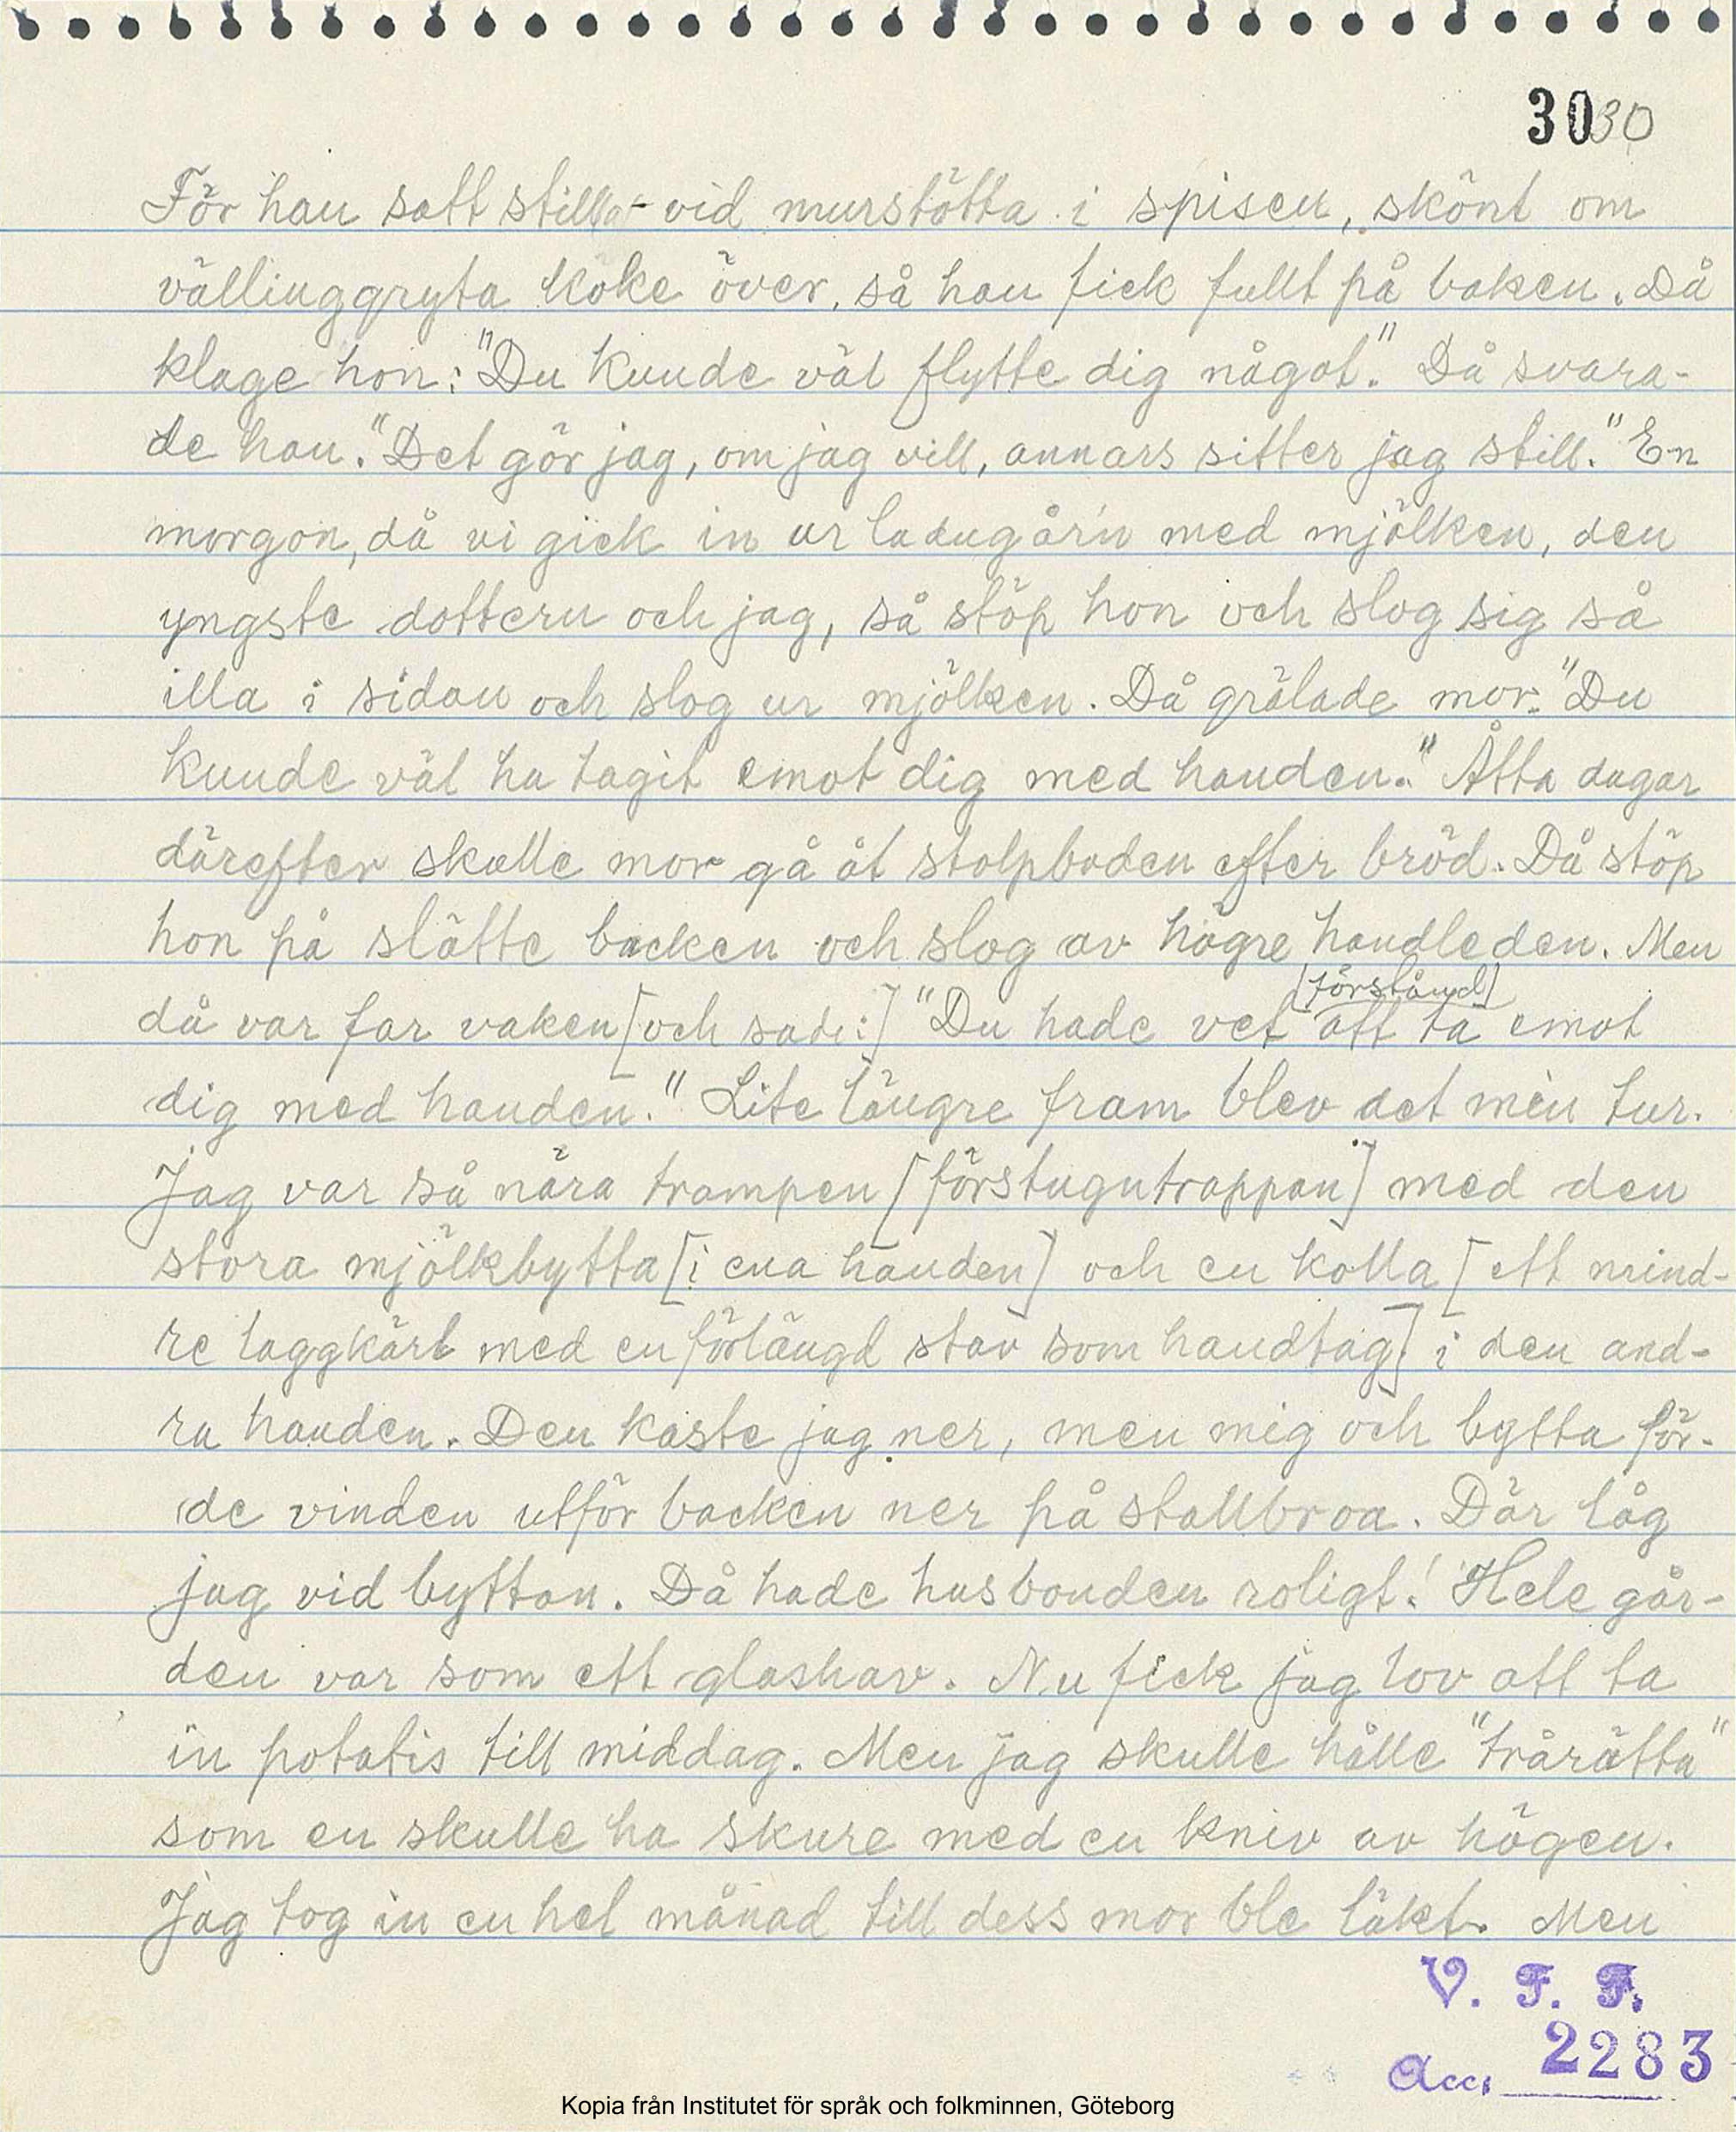 30 30
För han satt stilla vid murstötta i spisen, skönt om
vällinggryta koke över, så han fick fullt på baken. Då
klage hon: "Du kunde väl flytte dig något." Då svara-
de han. "Det gör jag, om jag vill, annars sitter jag still." En
morgon, då vi gick in ur ladugårn med mjölken, den
yngste dottern och jag, så stöp hon och slog sig så
illa i sidan och slog ur mjölken. Då grälade mor: "Du
kunde väl ha tagit emot dig med handen." Åtta dagar
därefter skulle mor gå åt stolpboden efter bröd. Då stöp
hon på slätte backen och slog av högre handleden. Men
[förstånd]
då var far vaken [och sade:] "Du hade vet att ta emot
dig med handen." Lite längre fram blev det min tur.
Jag var så nära trampen [förstugutrappan] med den
stora mjölkbytta [i ena handen] och en kolla [ett mind-
re laggkärl med en förlängd stav som handtag] i den and-
ra handen. Den kaste jag ner, men mig och bytta för-
de vinden utför backen ner på stallbroa. Där låg
jag vid byttan. Då hade husbonden roligt! Hele går-
den var som ett glashav. Nu fick jag lov att ta
in potatis till middag. Men jag skulle hålle "trårätta"
som en skulle ha skure med en kniv av högen.
Jag tog in en hel månad till dess mor ble läkt. Men
V. F. F.
Acc. 2283
Kopia från Institutet för språk och folkminnen, Göteborg